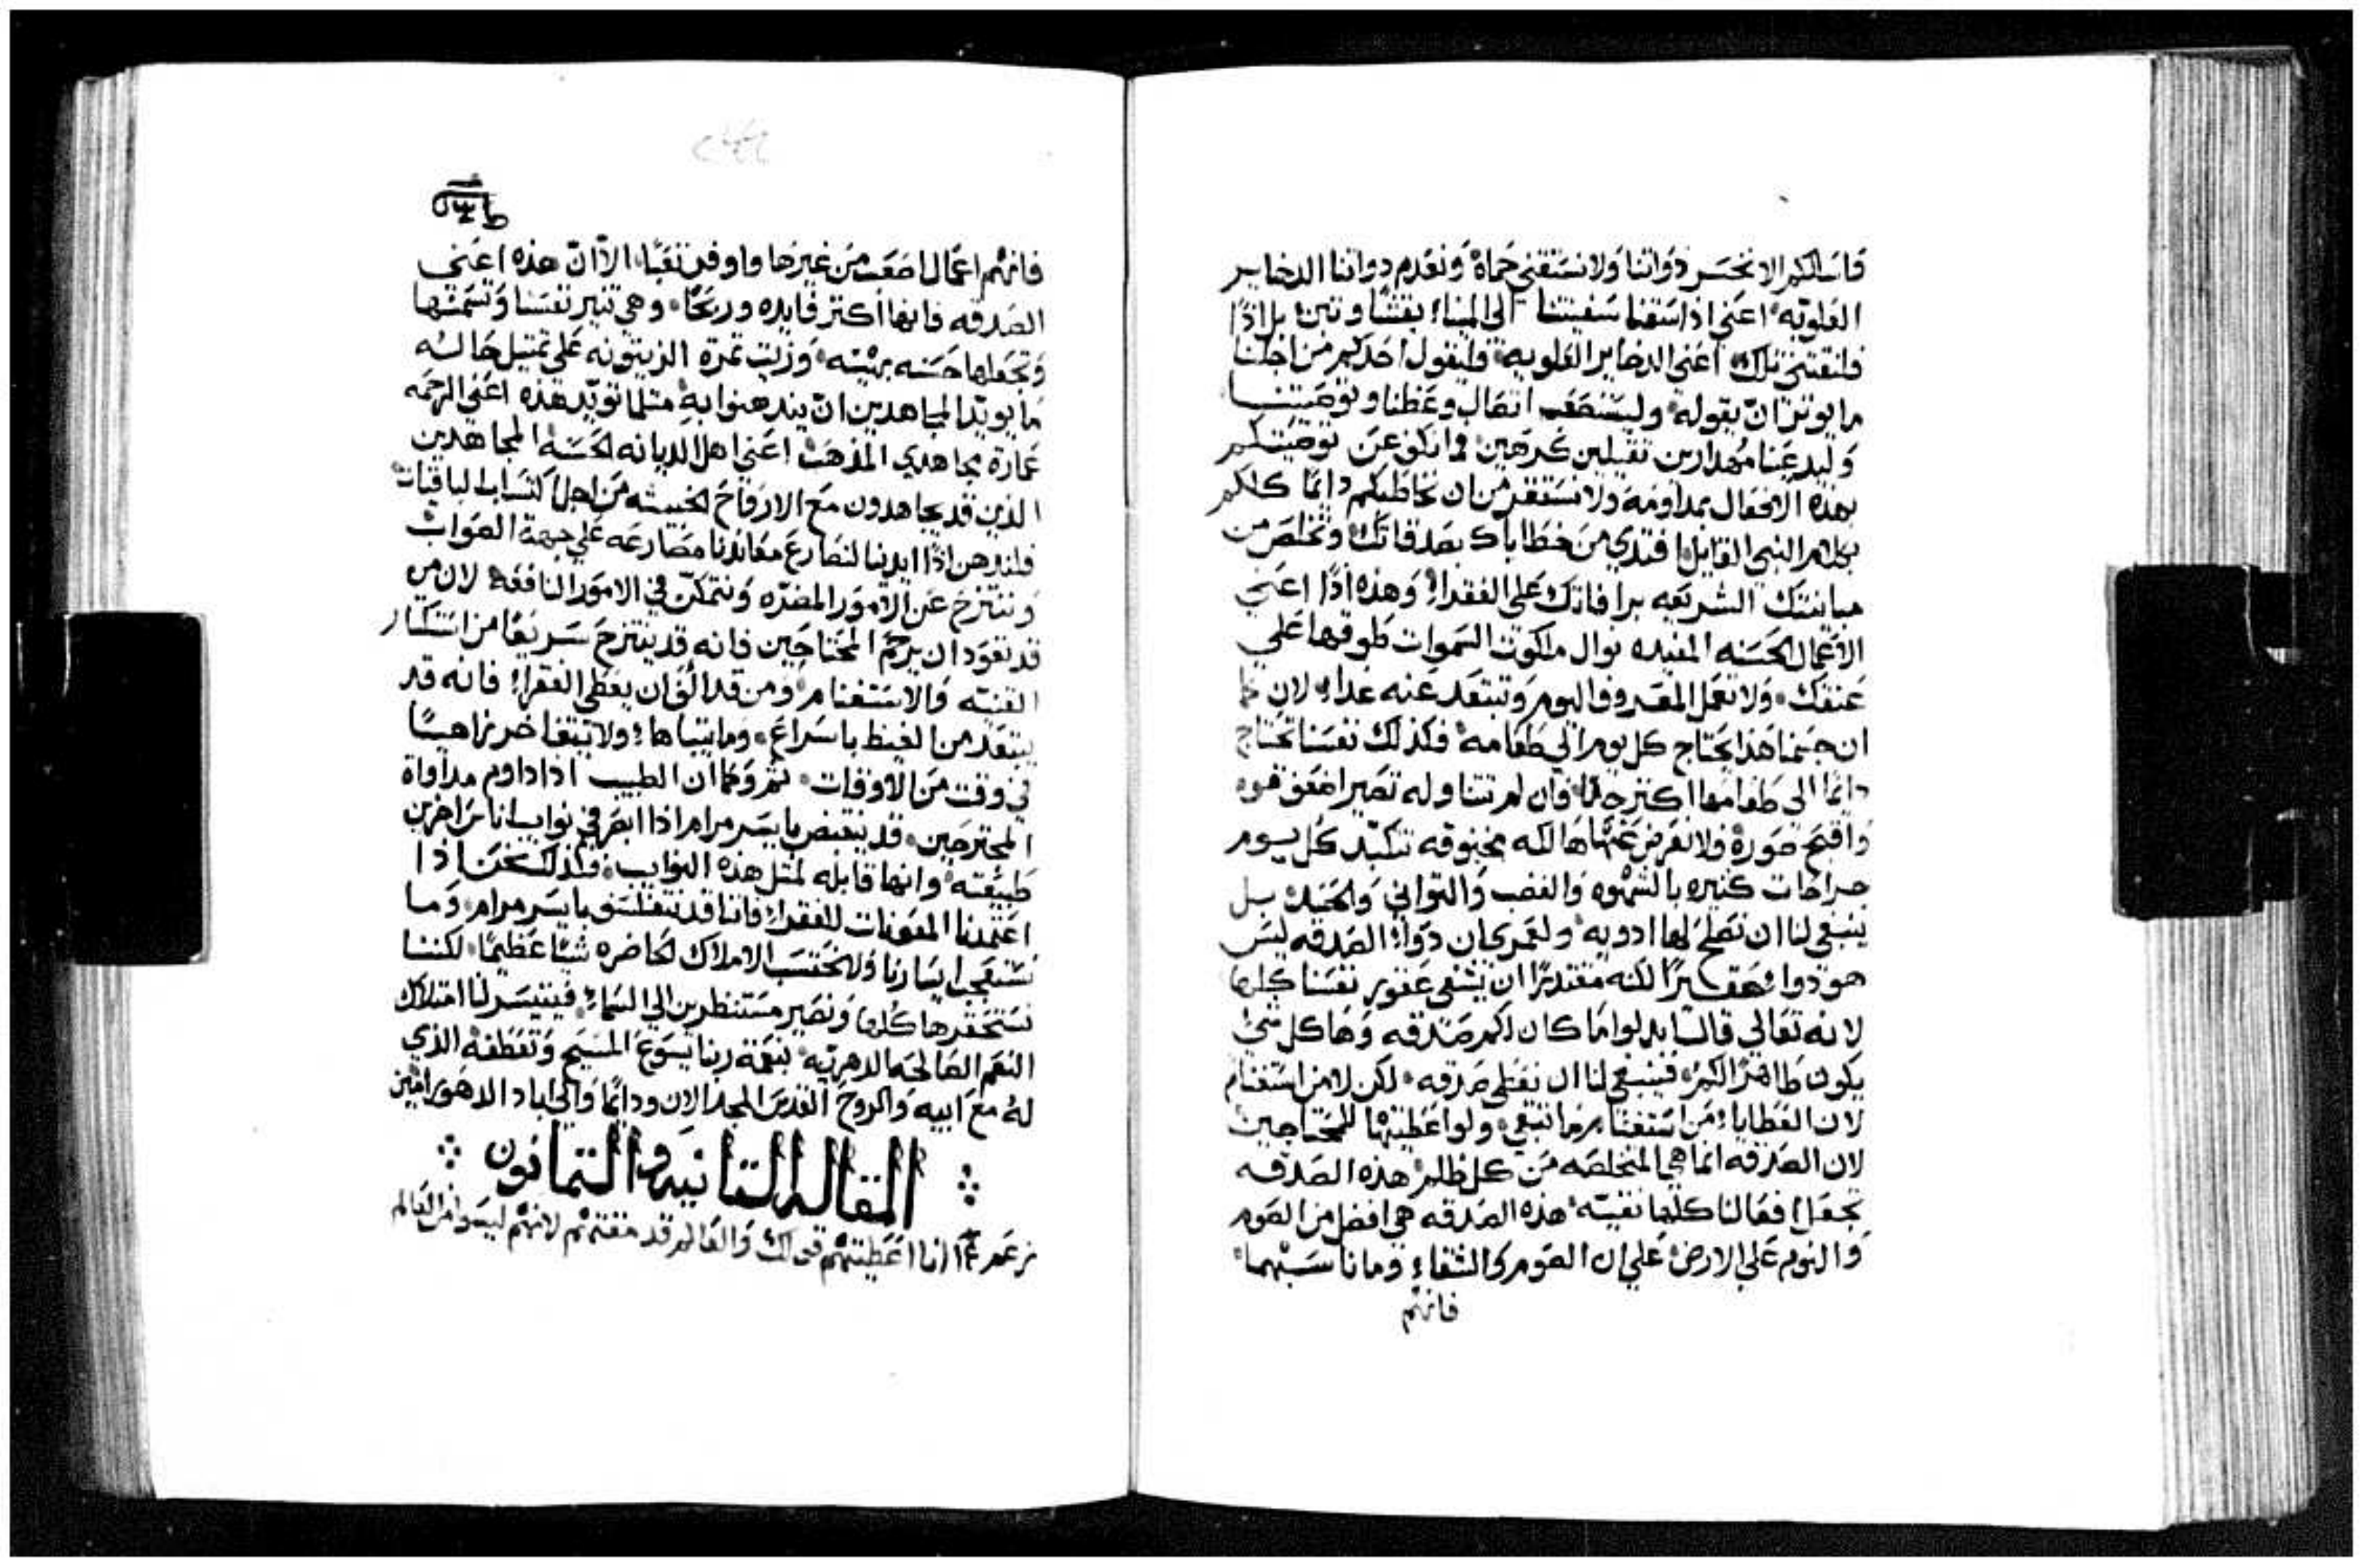 فاسالكم الا نخسر ذواتنا ولا نستقني حماة ونعدم ذواتنا الدخاير
العلويه اعني اذا سقنا سفينتنا الى الميناء بقشا وتبن بل اذا
فلنقتني تلك اعني الدخاير العلويه وليقول احدكم من اجلنا
ما يوثر ان يقوله وليستصعب اتصال وعظنا وتوصيتنا
وليدعنا مهدارين تقيلين مكرهين فما نكف عن توصيتكم
بهذه الافعال بمداومة ولا نستقر من ان نخاطبكم دايمًا كلكم
بكلام النبي القايل افتدي من خطاياك بصدقاتك وتخلص من
مباينتك الشريعه برافاتك على الفقراء وهذه اذًا اعني
الاعمال الحسنه المفيده نوال ملكوت السموات طوقها على
عنقك ولا تعمل المعروف اليوم وتبتعد عنه غدا لان كما
ان جسمنا هذا يحتاج كل يوم الي طعامه فكذلك نفسنا تحتاج
دايمًا الى طعامها اكتر جدًا فان لم تتناوله تصير اضعف قوه
واقبح صورة فلا نعرض عنها هالكه مخنوقه تتكبد كل يوم
جراحات كتيره بالشهوه والغضب والتواني والحقد بل
ينبغي لنا ان نصلح لها ادويه ولعمري ان دواء الصدقه ليس
هو دواء حقيرًا لكنه مقتدرًا ان يشفي عقور نفسنا كلها
لانه تعالى قال ابدلوا ما كان لكم صدقه وها كل شي
يكون طاهرًا لكم فينبغي لنا ان نعطي صدقه لكن لا من استغنام
لان العطايا من استغنام ما تبقي ولو اعطيتها للمحتاجين
لان الصدقه انما هي المتخلصه من كل ظلم هذه الصدقه
تجعل افعالنا كلها نقيه هذه الصدقه هي افضل من الصوم
والنوم على الارض على ان الصوم والشقاء وما ناسبهما
فانهم
فانهم اعمال اصعب من غيرها واوفر تعبًا الا ان هذه اعني
الصدقه فانها اكتر فايده وربحًا وهي تنير نفسنا وتسمنها
وتجعلها حسنه بهيه وزيت تمرة الزيتونه على تمتيل حاله
ما يويد المجاهدين ان يندهنوا به متلما تويد هذه اعني الرحمه
مجاهدي المذهب اعني اهل الديانه الحسنه المجاهدين
الذين قد يجاهدون مع الارواح الخبيثه من اجل اكتساب الباقيات
فلندهن اذًا ايدينا لنصارع معاندنا مصارعه على جهة الصواب
وننتزح عن الامور المضره ونتمكن في الامور النافعة لان من
قد تعود ان يرحم المحتاجين فانه قد ينتزح سريعًا من استكتار
القنيه والاستغنام ومن قد الف ان يعطي الفقراء فانه قد
يبتعد من الغيظ باسراع وما يتباها ولا
في وقت من الاوقات تم وكما ان الطبيب اذا داوم مداواة
المجترحين قد ينقبض بايسر مرام اذا ابصر في نوايب اناس اخرين
طبيعته وانها قابله لمتل هذه النوايب فكذلك نحن اذا
اعتمدنا المعونات للفقراء فاننا قد نتفلسف بايسر مرام وما
نستعجب ايسارنا ولا نحتسب الاملاك الحاضره شيًا عظيمًا لكننا
نستحقرها كلها ونصير مستنظرين الي السماء فيتيسر لنا امتلاك
النعم الصالحه الدهريه بنعمة ربنا يسوع المسيح وتعطفه الذي
له مع ابيه والروح القدس المجد الان ودايمًا والي اباد الدهور امين
المقاله التانيه والتمانون
نزعم انا اعطيتهم قولك والعالم قد مقتهم لانهم ليسوا من العالم